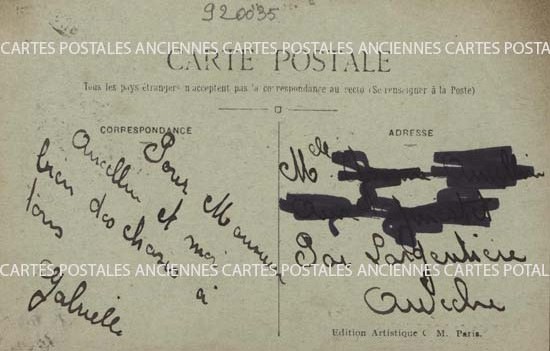 920035
CARTES POSTALES ANCIENNES CARTES POSTALES ANCIENNES CARTES POSTAL
CARTE POSTALE
Tous les pays étrangers n'acceptent pas la correspondance au recto (Se renseigner à la Poste)
CORRESPONDANCE
Pour Maman
Ancellin et moi
bien des choses à
tous
Gabrielle
ADRESSE
Mlle
Par Largentière
Ardèche
CARTES POSTALES ANCIENNES CARTES POSTALES ANCIENNES CARTES POSTAL
Edition Artistique C. M. Paris.